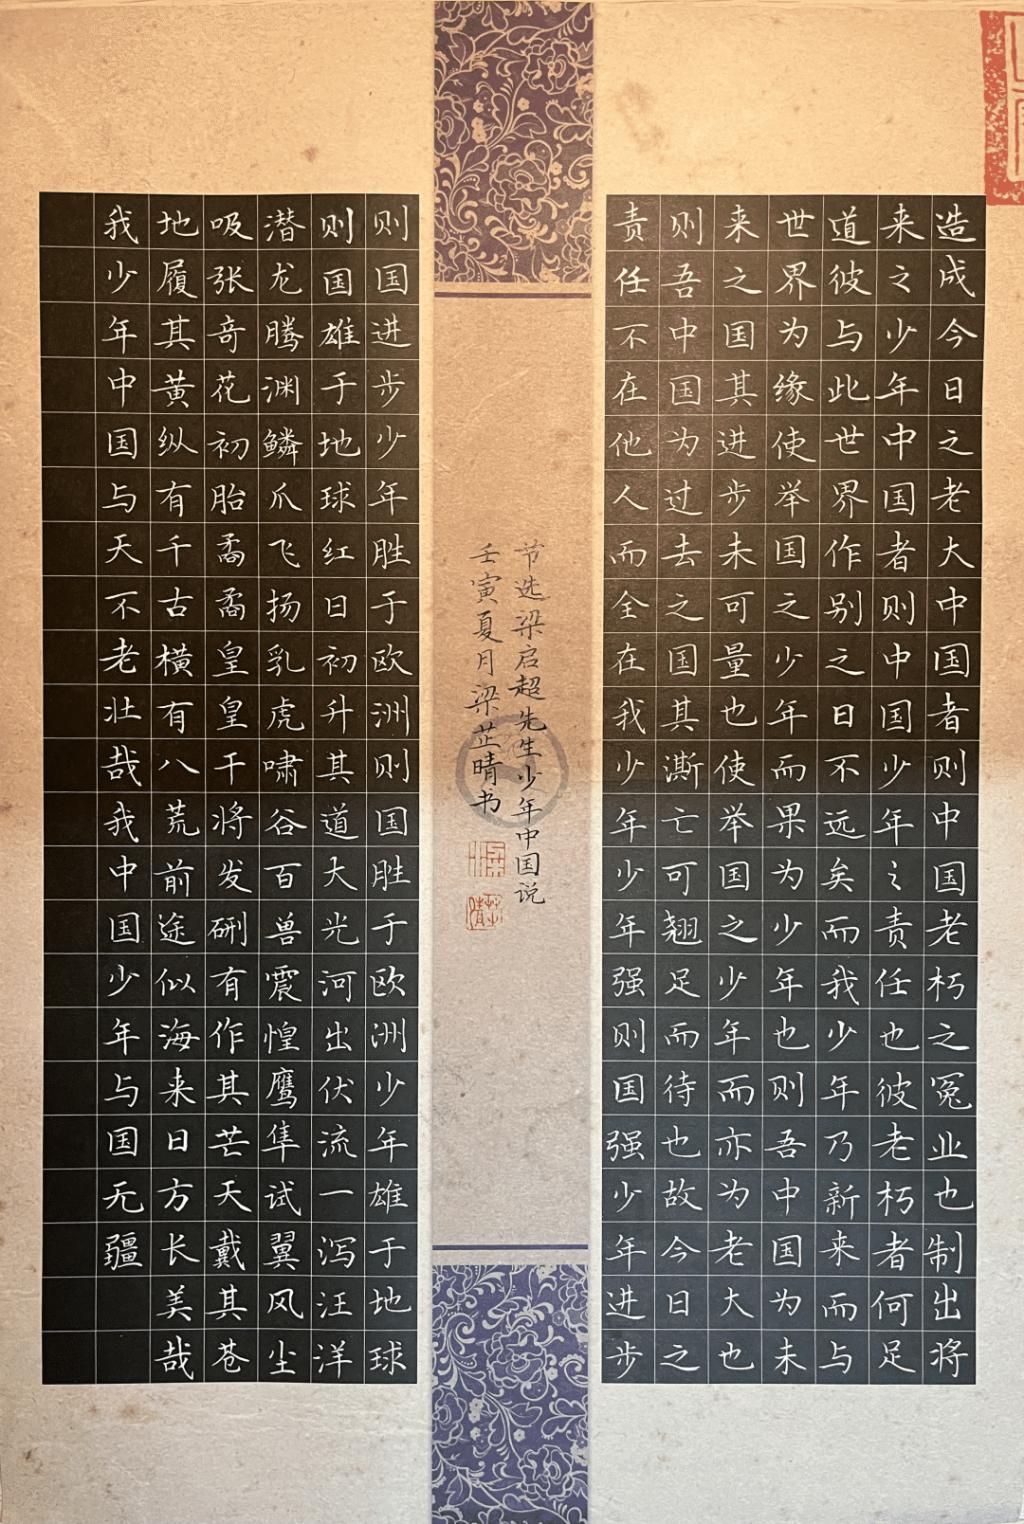 造成今日之老大中国者则中国老朽之冤业也制出将
来之少年中国者则中国少年之责任也彼老朽者何足
道彼与此世界作别之日不远矣而我少年乃新来而与
世界为缘使举国之少年而果为少年也则吾中国为未
来之国其进步未可量也使举国之少年而亦为老大也
则吾中国为过去之国其澌亡可翘足而待也故今日之
责任不在他人而全在我少年少年强则国强少年进步
则国进步少年胜于欧洲则国胜于欧洲少年雄于地球
则国雄于地球红日初升其道大光河出伏流一泻汪洋
潜龙腾渊鳞爪飞扬乳虎啸谷百兽震惶鹰隼试翼风尘
吸张奇花初胎矞矞皇皇干将发硎有作其芒天戴其苍
地履其黄纵有千古横有八荒前途似海来日方长美哉
我少年中国与天不老壮哉我中国少年与国无疆
节选梁启超先生少年中国说
壬寅夏月梁芷晴书